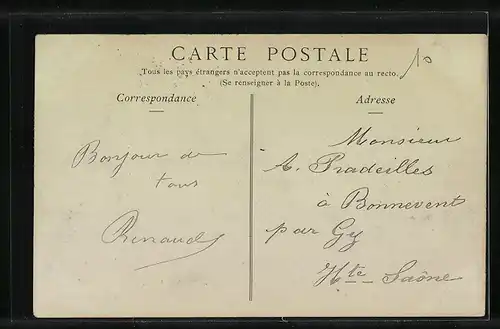 10
CARTE POSTALE
Tous les pays étrangers n'acceptent pas la correspondance au recto.
(Se renseigner à la Poste).
Correspondance
Bonjour de
tous
Renaud
Adresse
Monsieur
A. Pradeilles
à Bonnevent
par Gy
Hte-Saône